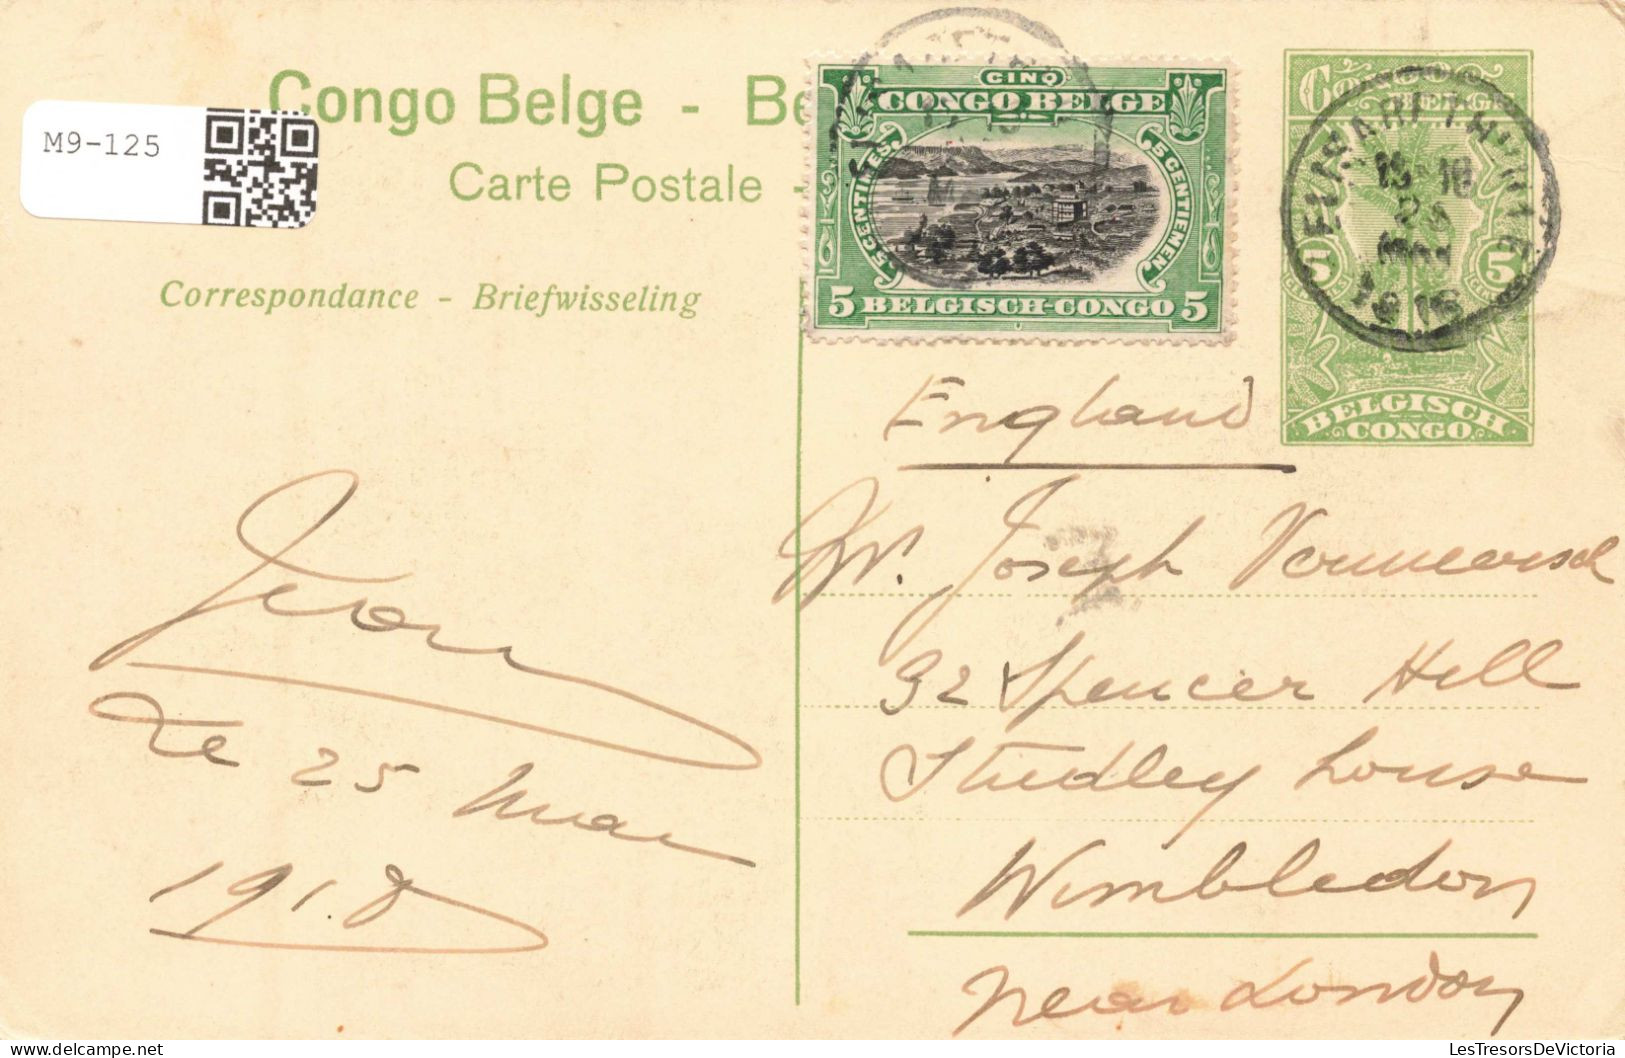 M9-125
Congo Belge - Be
Carte Postale -
Correspondance - Briefwisseling
CINQ
CONGO BELGE
5 CENTIMES
5 CENTIEMEN
5 BELGISCH-CONGO 5
Congo
BELGE
5 5
BELGISCH
CONGO
15-16
25
1918
England
Mr. Joseph
32 Spencer Hill
Studley house
Wimbledon
near London
Le 25 mar
1918
LesTresorsDeVictoria